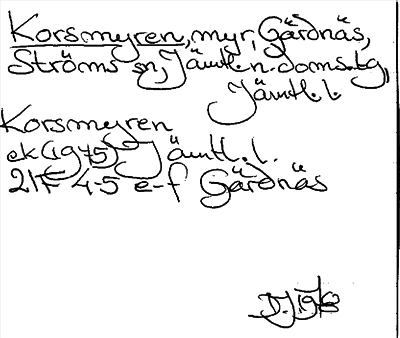 Korsmyren, myr, Gärdnäs,
Ströms sn, Jämtl. n. doms.tg,
Jämtl. l.
Korsmyren
ek (1975) Jämtl. l.
21F 4-5 e-f Gärdnäs